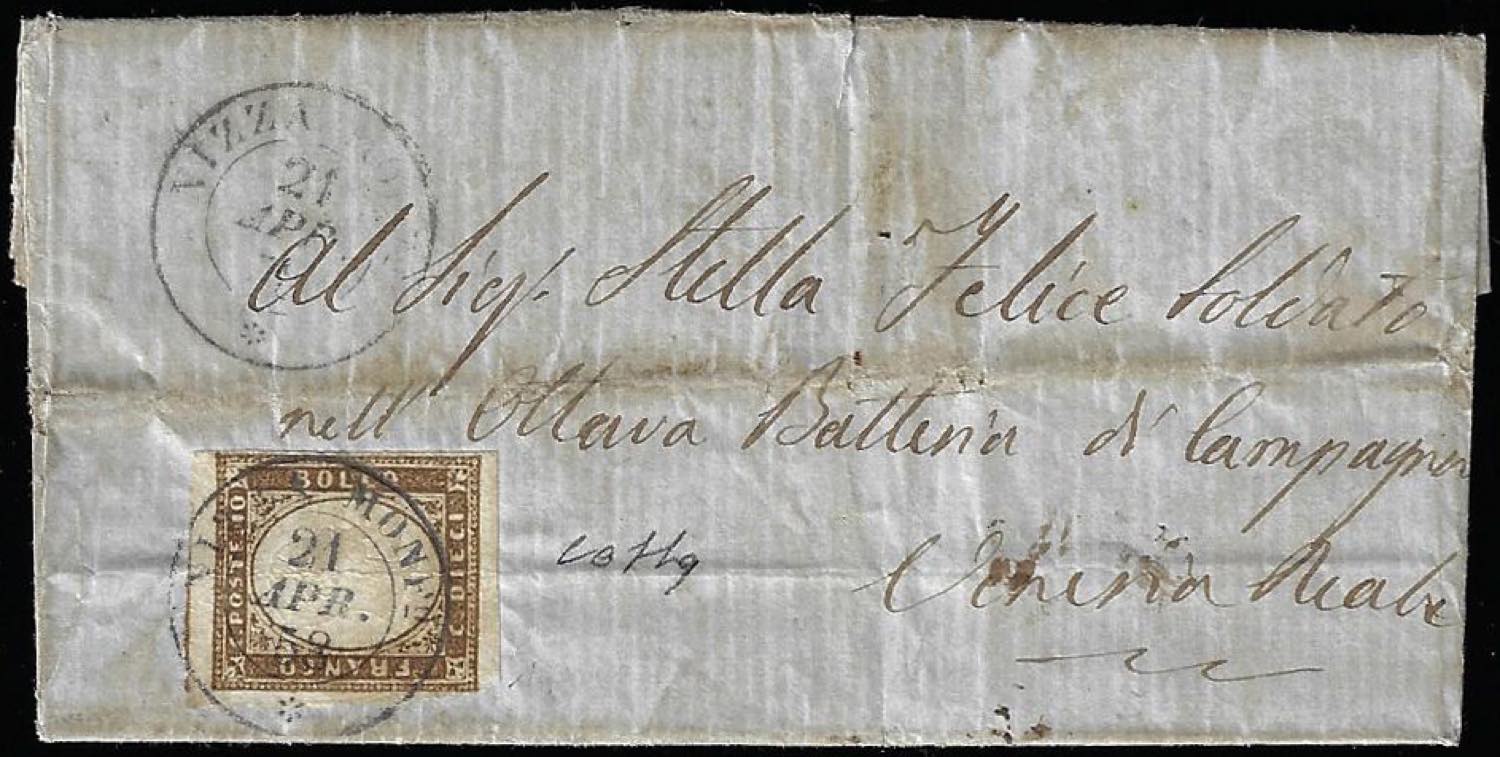 21
APR.
Al Sigr. Stella Felice Soldato
nell' Ottava Batteria di Campagna
Veneria Reale
BOLLO
POSTE 10
C. DIECI
FRANCO
MONF
21
APR.
59